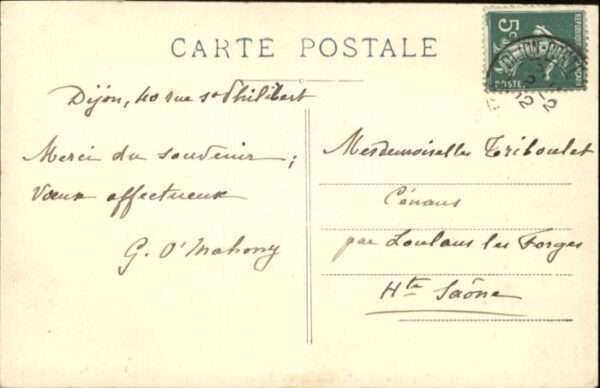 CARTE POSTALE
5c
POSTE
Dijon, 40 rue St Philibert
Merci du souvenir ;
Vœux affectueux
G. O'Mahony
Mesdemoiselles Triboulet
Cénans
par Loulans les Forges
Hte Saône